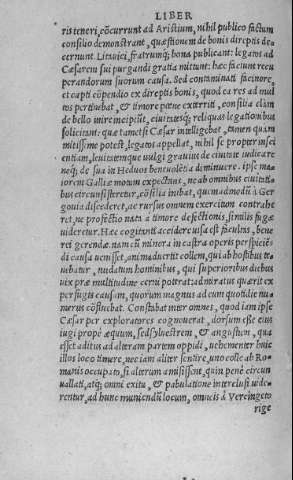 LIBER
ris teneri, cõcurrunt ad Aristium, nihil publico factum
consilio demonstrant, quæstionem de bonis direptis de
cernunt Litauici, fratrumq; bona publicant: legatos ad
Cæsarem sui purgandi gratia mittunt: hæc faciunt recu
perandorum suorum causa. Sed contaminati facinore,
et capti cõpendio ex direptis bonis, quod ea res ad mul
tos pertinebat, & timore pœnæ exterriti, consilia clam
de bello inire incipiũt, ciuitatesq; reliquas legationibus
solicitant: quæ tametsi Cæsar intelligebat, tamen quàm
mitissime potest, legatos appellat, nihil se propter insci
entiam, leuitatemque uulgi grauius de ciuitate iudicare
neq; de sua in Heduos beneuolẽtia diminuere. ipse ma
iorem Galliæ motum expectans, ne ab omnibus ciuitatibus circunsisteretur, cõsilia inibat, quemadmodũ à Ger
gouia discederet, ac rursus omnem exercitum contrahe
ret, ne profectio nata à timore defectionis, similis fugæ
uideretur. Hæc cogitãti accidere uisa est facultas, bene
rei gerendæ. nam cũ minora in castra operis perspiciẽ
di causa uenisset, animaduertit collem, qui ab hostibus te
nebatur, nudatum hominibus, qui superioribus diebus
uix præ multitudine cerni poterat: admiratus quærit ex
perfugis causam, quorum magnus ad eum quotidie nu
merus cõfluebat. Constabat inter omnes, quod iam ipse
Cæsar per exploratores cognouerat, dorsum esse eius
iugi propè æquum, sed syluestrem, & angustum, qua
esset aditus ad alteram partem oppidi, uehementer huic
illos loco timere, nec iam aliter sentire, uno colle ab Ro
manis occupato, si alterum amisissent, quin penè circun
uallati, atq; omni exitu, & pabulatione interclusi uide
rentur, ad hunc muniendũ locum, omneis à Vercingeto
rige